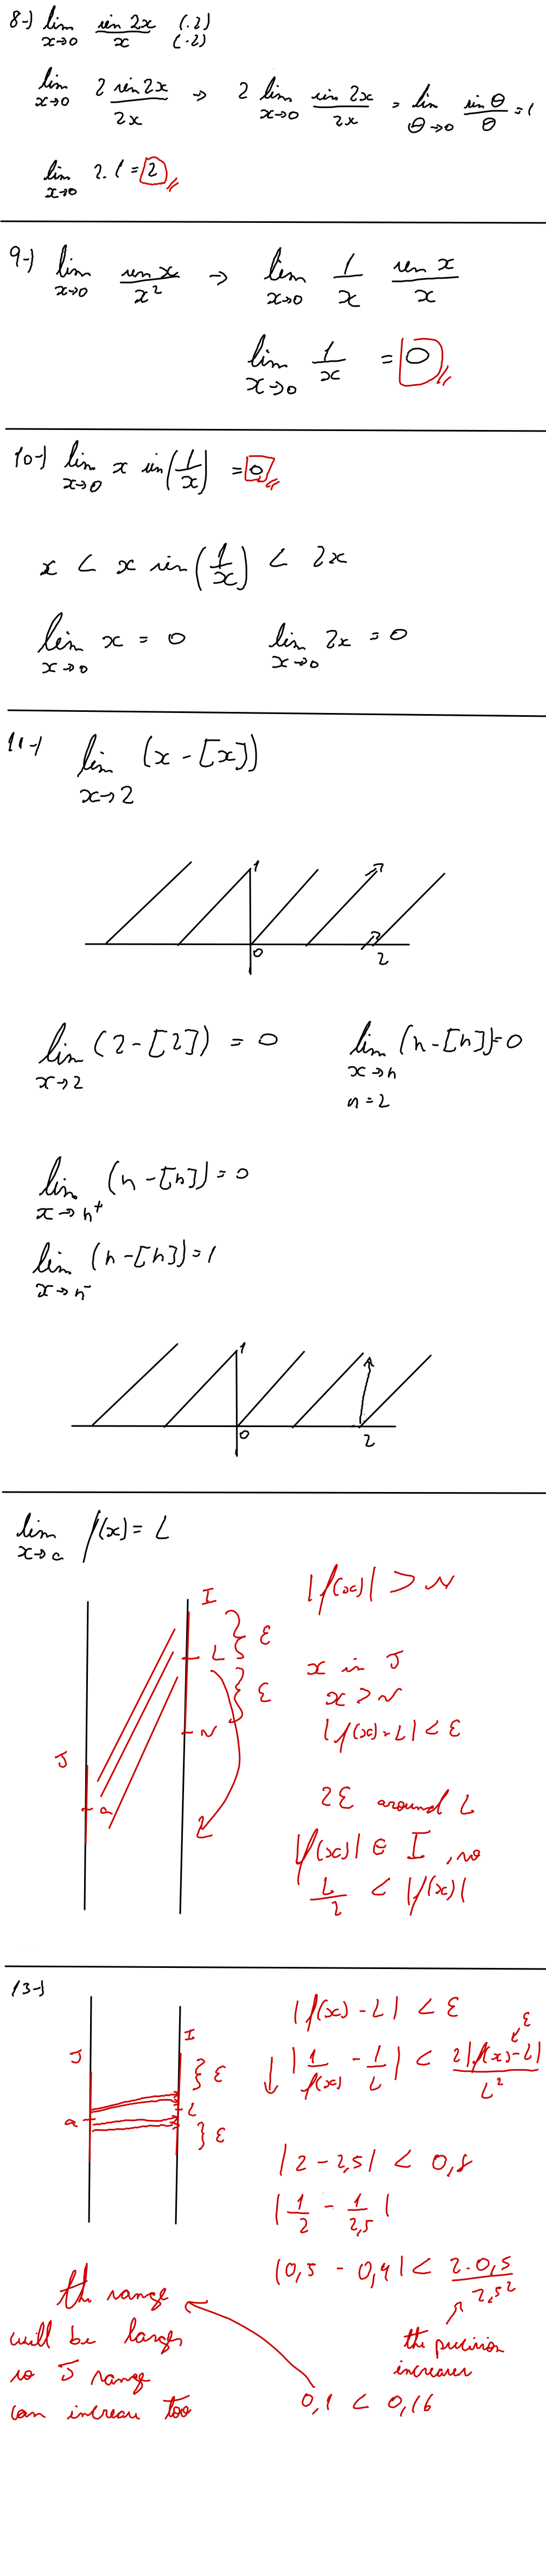 8-) lim x→0 sin 2x / x (.2) (.2)
lim x→0 2 sin 2x / 2x → 2 lim x→0 sin 2x / 2x = lim θ→0 sin θ / θ = 1
lim x→0 2.1 = 2
9-) lim x→0 sen x / x² → lim x→0 1/x sen x / x
lim x→0 1/x = 0
10-) lim x→0 x sin(1/x) = 0
x < x sin(1/x) < 2x
lim x→0 x = 0 lim x→0 2x = 0
11-) lim x→2 (x - [x])
1
0 2
lim x→2 (2 - [2]) = 0 lim x→n (n - [n]) = 0
n = 2
lim x→n⁺ (n - [n]) = 0
lim x→n⁻ (n - [n]) = 1
1
0 2
lim x→a f(x) = L
|f(x)| > N
I
ε
L
x in J
ε
x > N
N
|f(x) - L| < ε
J
a
2ε around L
L
|f(x)| ∈ I, so
L/2 < |f(x)|
13-)
|f(x) - L| < ε
J I
ε
ε
↓ |1/f(x) - 1/L| < 2|f(x) - L| / L²
a L
ε
|2 - 2,5| < 0,8
|1/2 - 1/2,5|
|0,5 - 0,4| < 2.0,5 / 2,5²
the range
will be larger
so J range
can increase too
the precision
increases
0,1 < 0,16